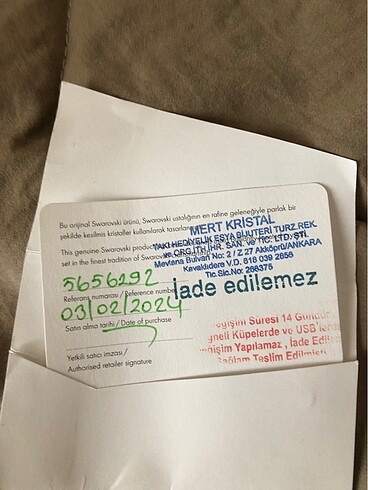 Bu orijinal Swarovski ürünü, Swarovski ustalığının en rafine geleneğiyle parlak bir
şekilde kesilmiş kristaller kullanılarak tasarlan
This genuine Swarovski product
set in the finest tradition of Swarovski
MERT KRİSTAL
TAKI HEDİYELİK EŞYA BİJUTERİ TURZ.REK.
ve ORG.İTH.İHR. SAN. ve TİC. LTD. ŞTİ.
Mevlana Bulvarı No: 2 / Z 27 Akköprü/ANKARA
Kavaklıdere V.D. 618 039 2656
Tic.Sic.No: 266375
5656292
Referans numarası / Reference number
İade edilemez
03/02/2024
Satın alma tarihi / Date of purchase
Değişim Süresi 14 Gündür
İğneli Küpelerde ve USB'lerde
Değişim Yapılamaz, İade Edil
Sağlam Teslim Edilmişti
Yetkili satıcı imzası /
Authorised retailer signature